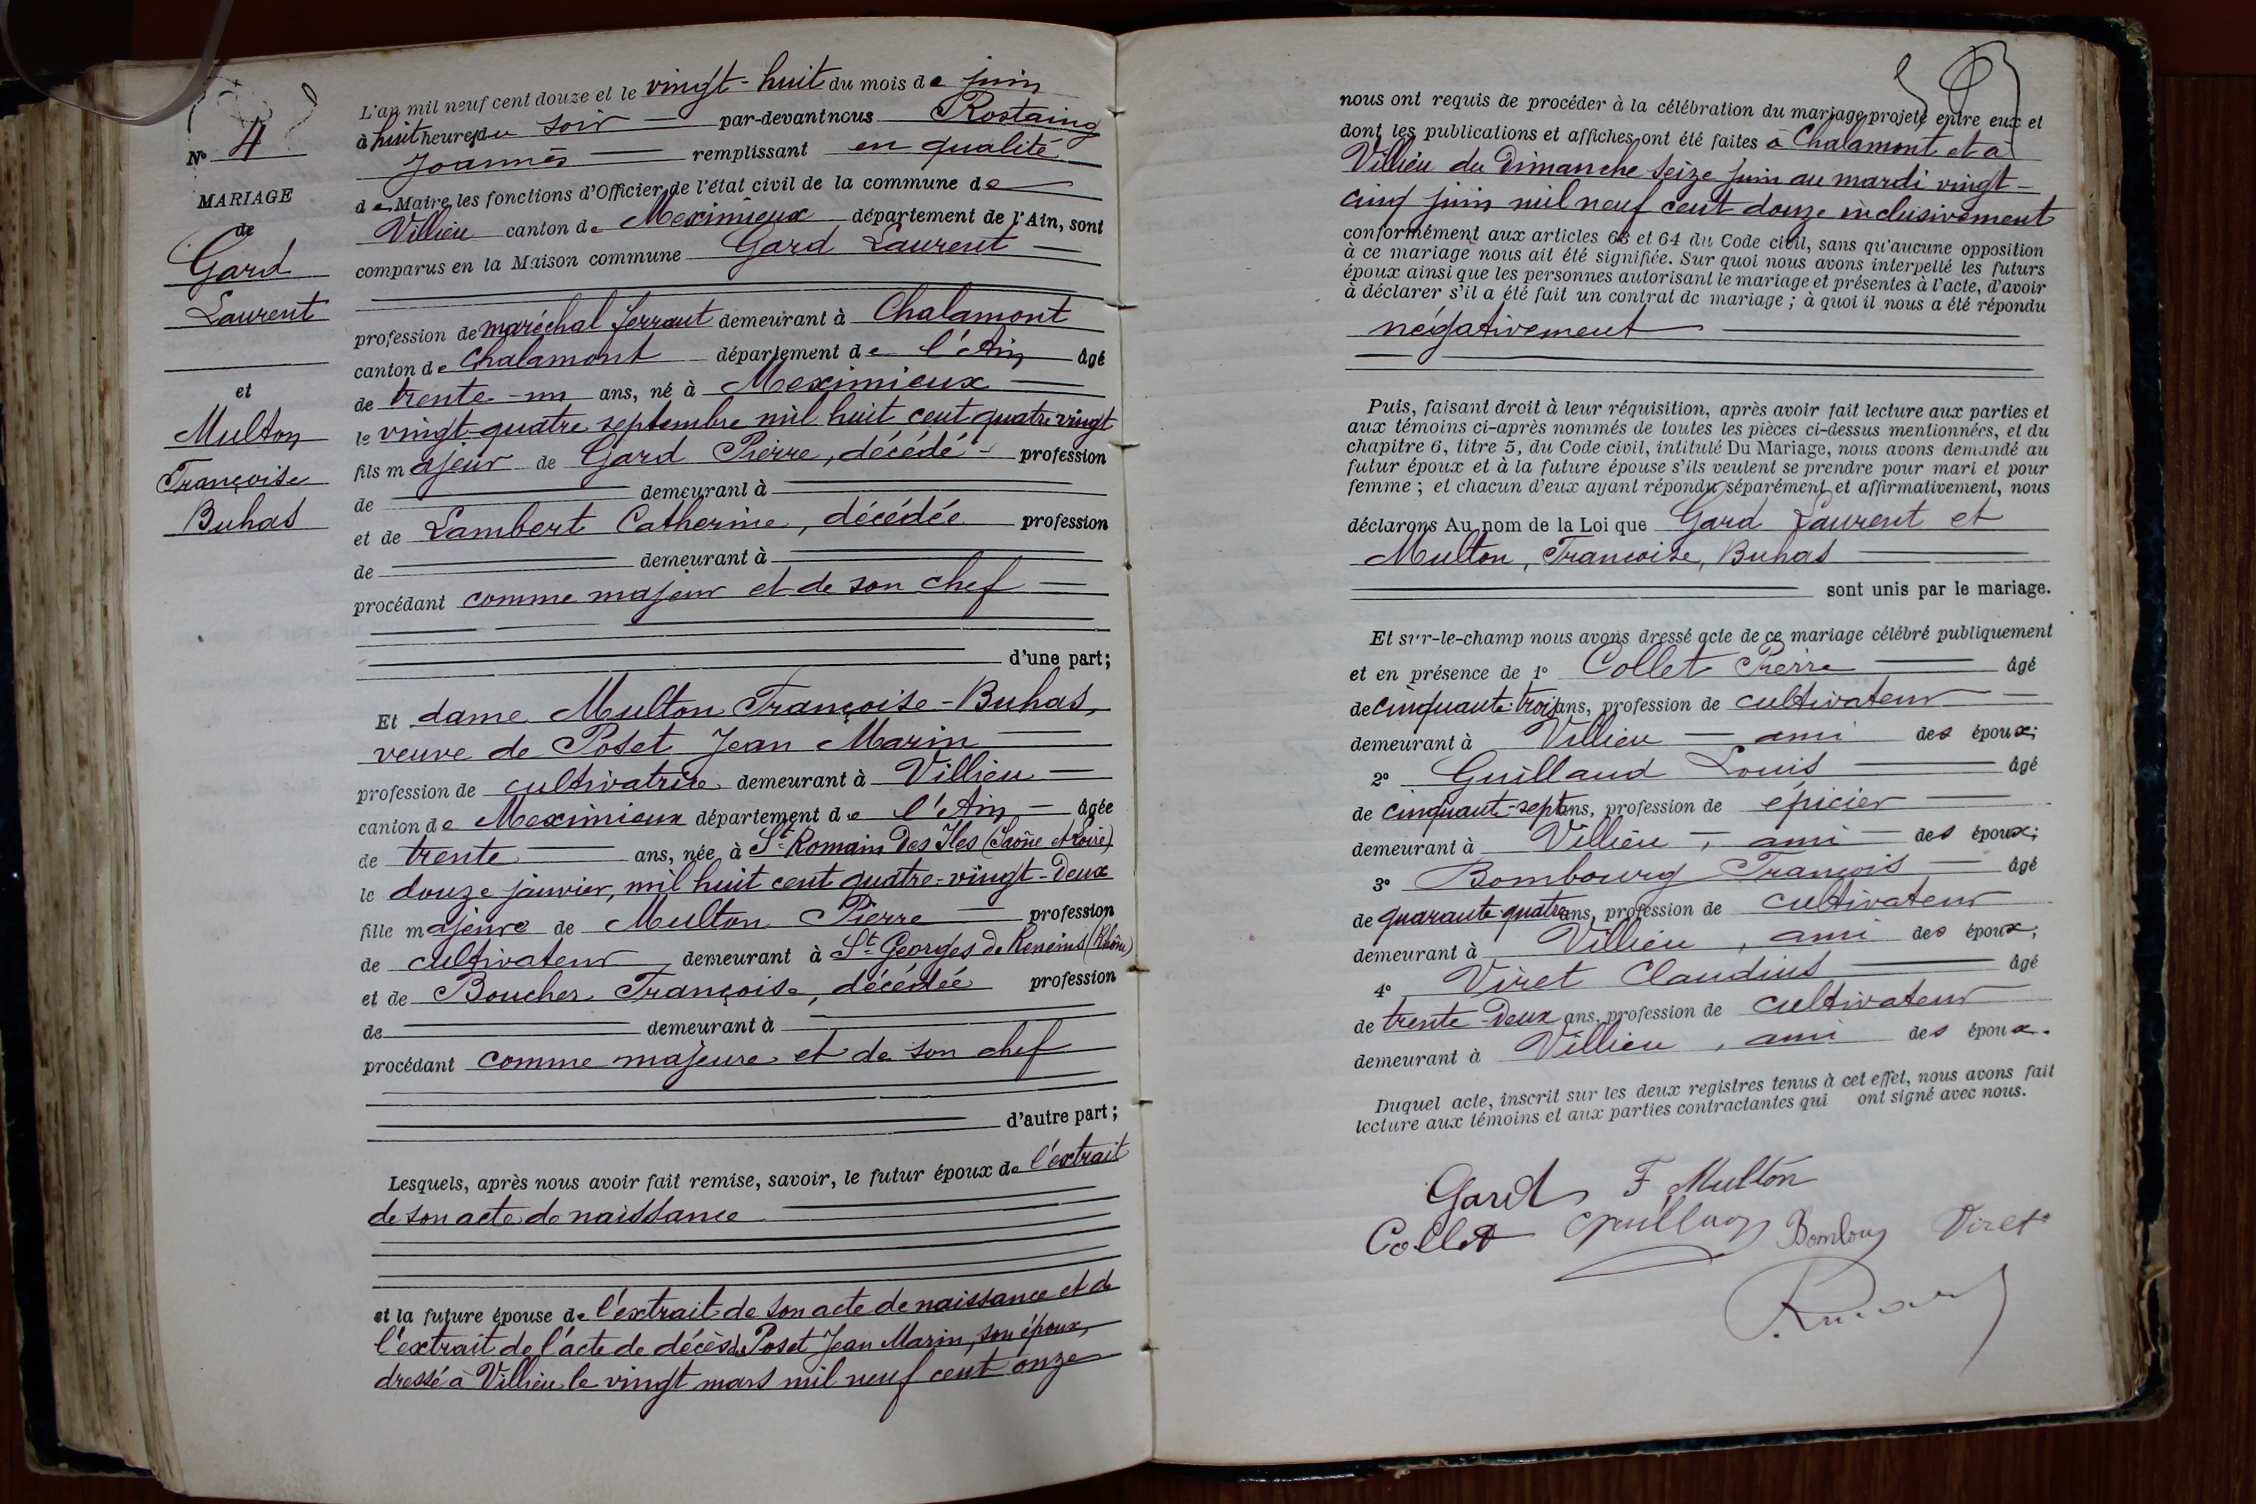 N° 4
MARIAGE
de
Gard
Laurent
et
Multon
Françoise
Buhas
L'an mil neuf cent douze et le vingt-huit du mois de juin
à huit heures du soir par-devant nous Rostaing
Joannès remplissant en qualité
de Maire les fonctions d'Officier de l'état civil de la commune de
Villieu canton de Meximieux département de l'Ain, sont
comparus en la Maison commune Gard Laurent
profession de maréchal ferrant demeurant à Chalamont
canton de Chalamont département de l'Ain âgé
de trente-un ans, né à Meximieux
le vingt-quatre septembre mil huit cent quatre vingt
fils majeur de Gard Pierre, décédé profession
de demeurant à
et de Lambert Catherine, décédée profession
de demeurant à
procédant comme majeur et de son chef
d'une part;
Et dame Multon Françoise-Buhas,
veuve de Poset Jean Marin
profession de cultivatrice demeurant à Villieu
canton de Meximieux département de l'Ain âgée
de trente ans, née à St Romain Des Iles (Saône et Loire)
le douze janvier, mil huit cent quatre-vingt-deux
fille majeure de Multon Pierre profession
de cultivateur demeurant à St Georges de Reneins (Rhône)
et de Boucher Françoise, décédée profession
de demeurant à
procédant comme majeure et de son chef
d'autre part;
Lesquels, après nous avoir fait remise, savoir, le futur époux de l'extrait
de son acte de naissance
et la future épouse de l'extrait de son acte de naissance et de
l'extrait de l'acte de décès de Poset Jean Marin, son époux,
dressé à Villieu le vingt mars mil neuf cent onze
nous ont requis de procéder à la célébration du mariage projeté entre eux et
dont les publications et affiches ont été faites à Chalamont et à
Villieu du Dimanche seize juin au mardi vingt-
cinq juin mil neuf cent douze inclusivement
conformément aux articles 63 et 64 du Code civil, sans qu'aucune opposition
à ce mariage nous ait été signifiée. Sur quoi nous avons interpellé les futurs
époux ainsi que les personnes autorisant le mariage et présentes à l'acte, d'avoir
à déclarer s'il a été fait un contrat de mariage ; à quoi il nous a été répondu
négativement
Puis, faisant droit à leur réquisition, après avoir fait lecture aux parties et
aux témoins ci-après nommés de toutes les pièces ci-dessus mentionnées, et du
chapitre 6, titre 5, du Code civil, intitulé Du Mariage, nous avons demandé au
futur époux et à la future épouse s'ils veulent se prendre pour mari et pour
femme ; et chacun d'eux ayant répondu séparément et affirmativement, nous
déclarons Au nom de la Loi que Gard Laurent et
Multon, Francoise, Buhas
sont unis par le mariage.
Et sur-le-champ nous avons dressé acte de ce mariage célébré publiquement
et en présence de 1° Collet Pierre âgé
de cinquante-trois ans, profession de cultivateur
demeurant à Villieu ami des époux;
2° Guillaud Louis âgé
de cinquant-sept ans, profession de épicier
demeurant à Villieu, ami des époux;
3° Bombourg François âgé
de quarante-quatre ans, profession de cultivateur
demeurant à Villieu, ami des époux;
4° Viret Claudius âgé
de trente-deux ans, profession de cultivateur
demeurant à Villieu, ami des époux.
Duquel acte, inscrit sur les deux registres tenus à cet effet, nous avons fait
lecture aux témoins et aux parties contractantes qui ont signé avec nous.
Gard F Multon
Collet Bombourg Viret